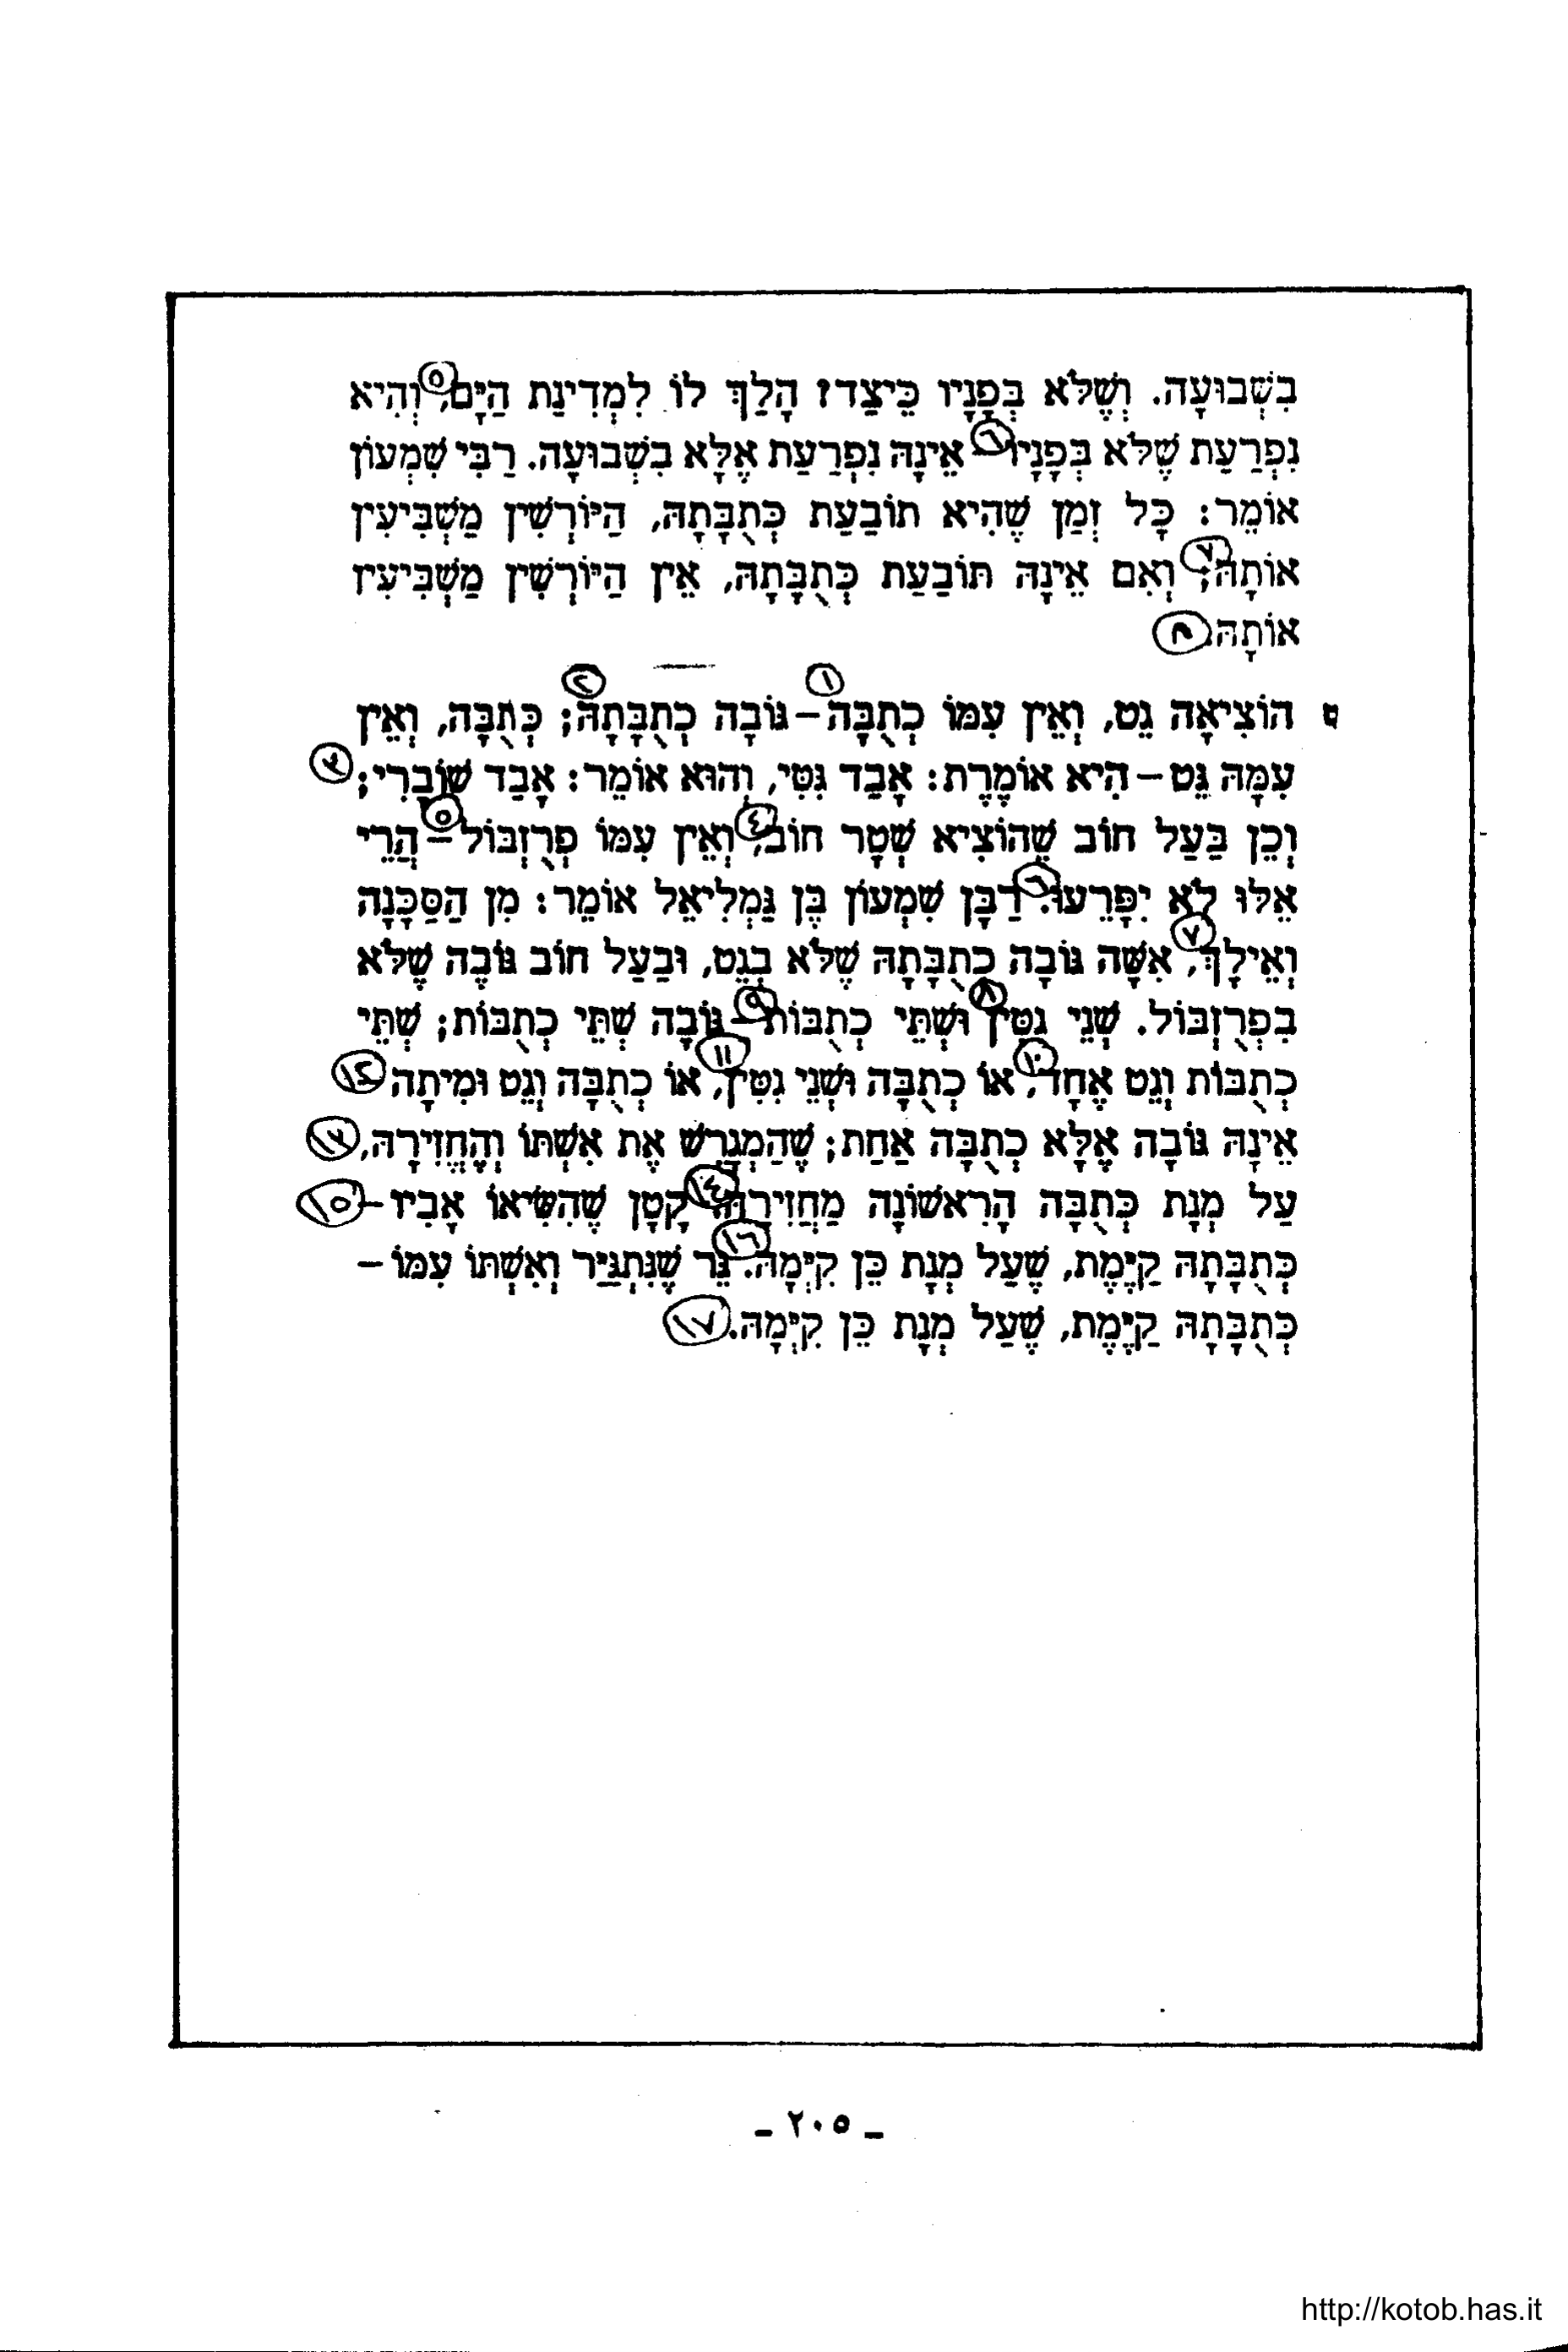 בִשְׁבוּעָה. וְשֶׁלֹּא בְּפָנָיו כֵּיצַד? הָלַךְ לוֹ לִמְדִינַת הַיָּם,(٥) וְהִיא
נִפְרַעַת שֶׁלֹּא בְּפָנָיו(٦) אֵינָהּ נִפְרַעַת אֶלָּא בִשְׁבוּעָה. רַבִּי שִׁמְעוֹן
אוֹמֵר: כָּל זְמַן שֶׁהִיא תוֹבַעַת כְּתֻבָּתָהּ, הַיּוֹרְשִׁין מַשְׁבִּיעִין
אוֹתָהּ;(٧) וְאִם אֵינָהּ תּוֹבַעַת כְּתֻבָּתָהּ, אֵין הַיּוֹרְשִׁין מַשְׁבִּיעִין
אוֹתָהּ.(٨)
ט הוֹצִיאָה גֵט, וְאֵין עִמּוֹ כְתֻבָּה(١) – גּוֹבָה כְתֻבָּתָהּ;(٢) כְּתֻבָּה, וְאֵין
עִמָּהּ גֵּט – הִיא אוֹמֶרֶת: אָבַד גִּטִּי, וְהוּא אוֹמֵר: אָבַד שׁוֹבָרִי;(٣)
וְכֵן בַּעַל חוֹב שֶׁהוֹצִיא שְׁטָר חוֹב,(٤) וְאֵין עִמּוֹ פְרֻזְבּוֹל(٥) – הֲרֵי
אֵלּוּ לֹא יִפָּרֵעוּ.(٦) רַבָּן שִׁמְעוֹן בֶּן גַּמְלִיאֵל אוֹמֵר: מִן הַסַּכָּנָה
וְאֵילָךְ,(٧) אִשָּׁה גּוֹבָה כְתֻבָּתָהּ שֶׁלֹּא בְגֵט, וּבַעַל חוֹב גּוֹבֶה שֶׁלֹּא
בִפְרֻזְבּוֹל. שְׁנֵי גִטִּין(٨) וּשְׁתֵּי כְתֻבּוֹת(٩) – גּוֹבָה שְׁתֵּי כְתֻבּוֹת; שְׁתֵּי
כְתֻבּוֹת וְגֵט אֶחָד,(١٠) אוֹ כְתֻבָּה וּשְׁנֵי גִטִּין,(١١) אוֹ כְתֻבָּה וְגֵט וּמִיתָה(١٢)
אֵינָהּ גּוֹבָה אֶלָּא כְתֻבָּה אַחַת; שֶׁהַמְגָרֵשׁ אֶת אִשְׁתּוֹ וְהֶחֱזִירָהּ,(١٣)
עַל מְנָת כְּתֻבָּה הָרִאשׁוֹנָה מַחֲזִירָהּ.(١٤) קָטָן שֶׁהִשִּׂיאוֹ אָבִיו –(١٥)
כְּתֻבָּתָהּ קַיֶּמֶת, שֶׁעַל מְנָת כֵּן קִיְּמָהּ.(١٦) גֵּר שֶׁנִּתְגַּיֵּר וְאִשְׁתּוֹ עִמּוֹ –
כְּתֻבָּתָהּ קַיֶּמֶת, שֶׁעַל מְנָת כֵּן קִיְּמָהּ.(١٧)
– ٢٠٥ –
http://kotob.has.it